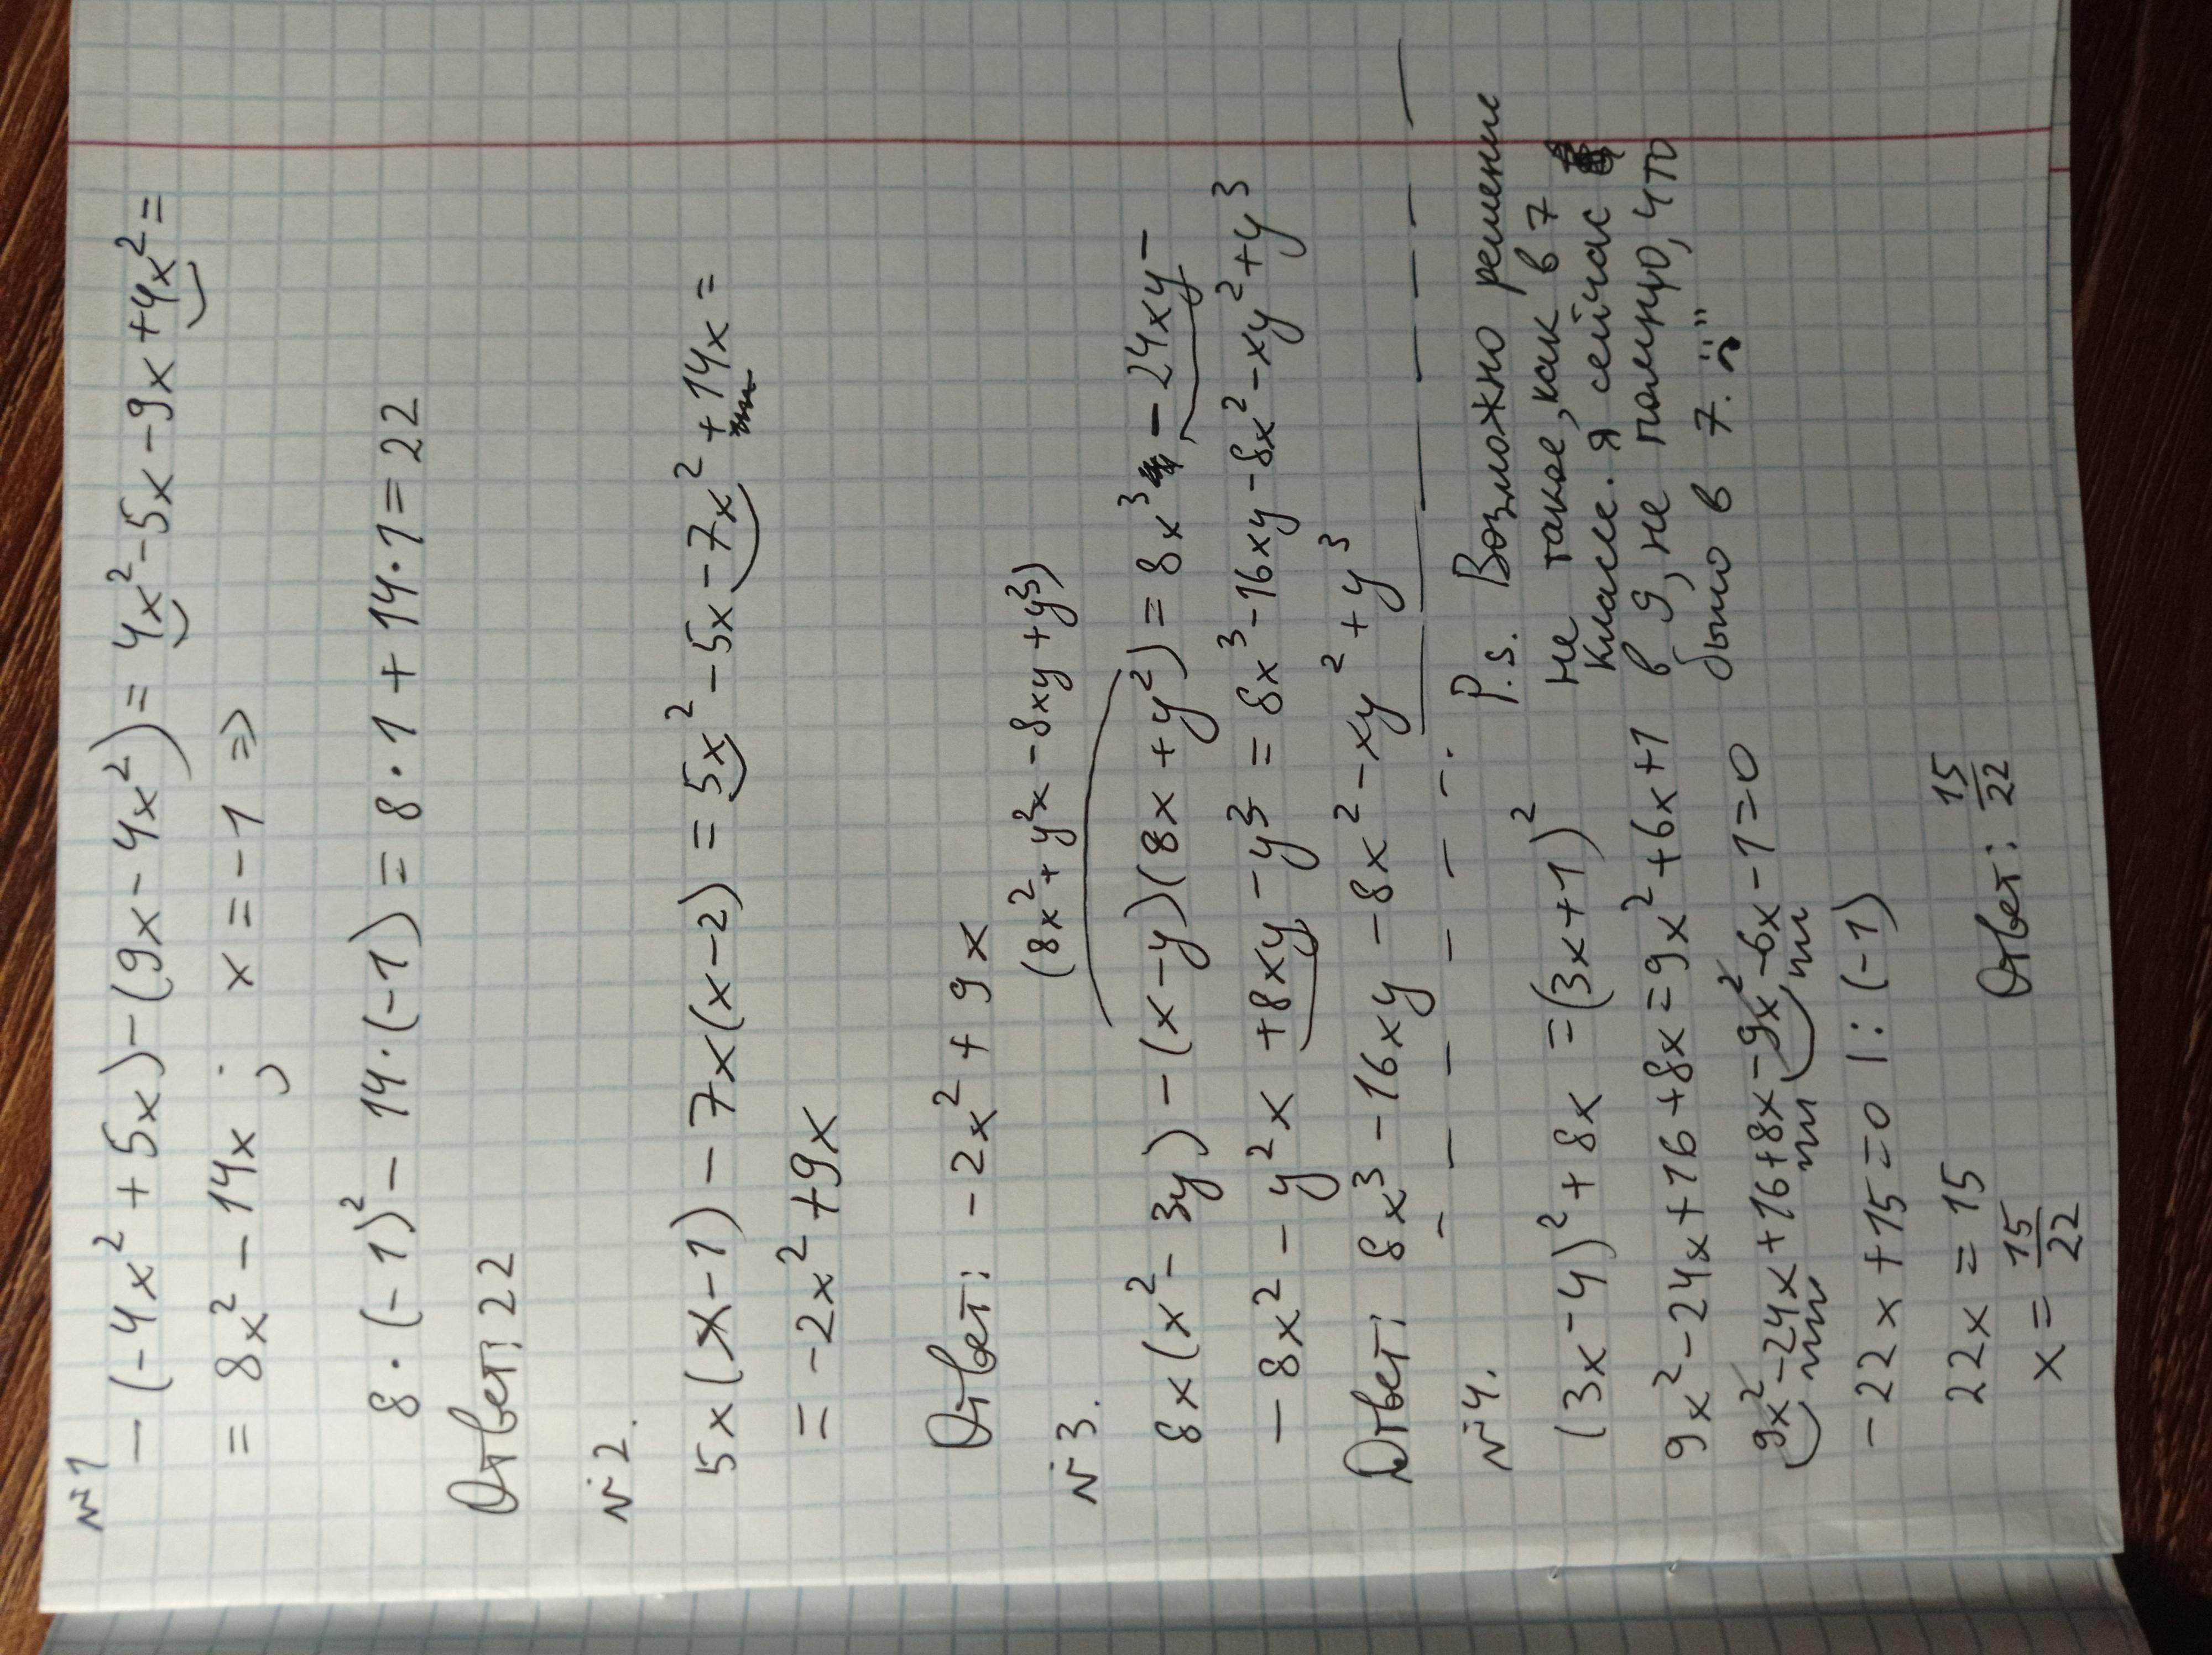 №1
-(-4x²+5x)-(9x-4x²)=4x²-5x-9x+4x²=
=8x²-14x; x=-1 =>
8·(-1)²-14·(-1)=8·1+14·1=22
Ответ: 22
№2.
5x(x-1)-7x(x-2)=5x²-5x-7x²+14x=
=-2x²+9x
Ответ: -2x²+9x
№3.
(8x²+y²x-8xy+y³)
8x(x²-3y)-(x-y)(8x+y²)=8x³-24xy-
-8x²-y²x+8xy-y³=8x³-16xy-8x²-xy²+y³
Ответ: 8x³-16xy-8x²-xy²+y³
№4.
(3x-4)²+8x=(3x+1)²
9x²-24x+16+8x=9x²+6x+1
9x²-24x+16+8x-9x²-6x-1=0
-22x+15=0 |:(-1)
22x=15
x=15/22
Ответ: 15/22
P.s. Возможно решение
не такое, как в 7
классе. Я сейчас
в 9, не помню, что
было в 7.